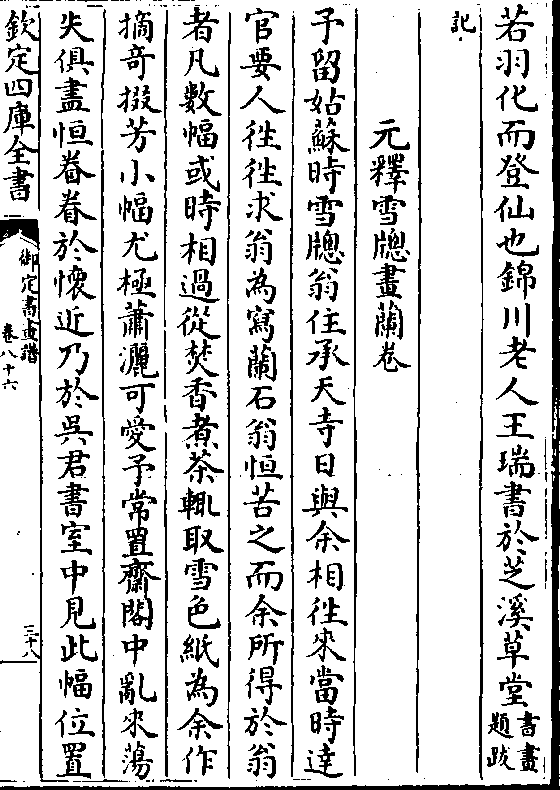 若羽化而登仙也錦川老人王瑞書於芝溪草堂書畫題跋
記
元釋雪牕畫蘭卷
予留姑蘇時雪牕翁住承天寺日與余相徃來當時達
官要人徃徃求翁為寫蘭石翁恒苦之而余所得於翁
者凡數幅或時相過從焚香煮茶輒取雪色紙為余作
摘奇掇芳小幅尤極蕭灑可愛予常置齋閣中亂來蕩
失俱盡恒眷眷於懷近乃於吳君書室中見此幅位置
欽定四庫全書
御定書畫譜
卷八十六
三十八